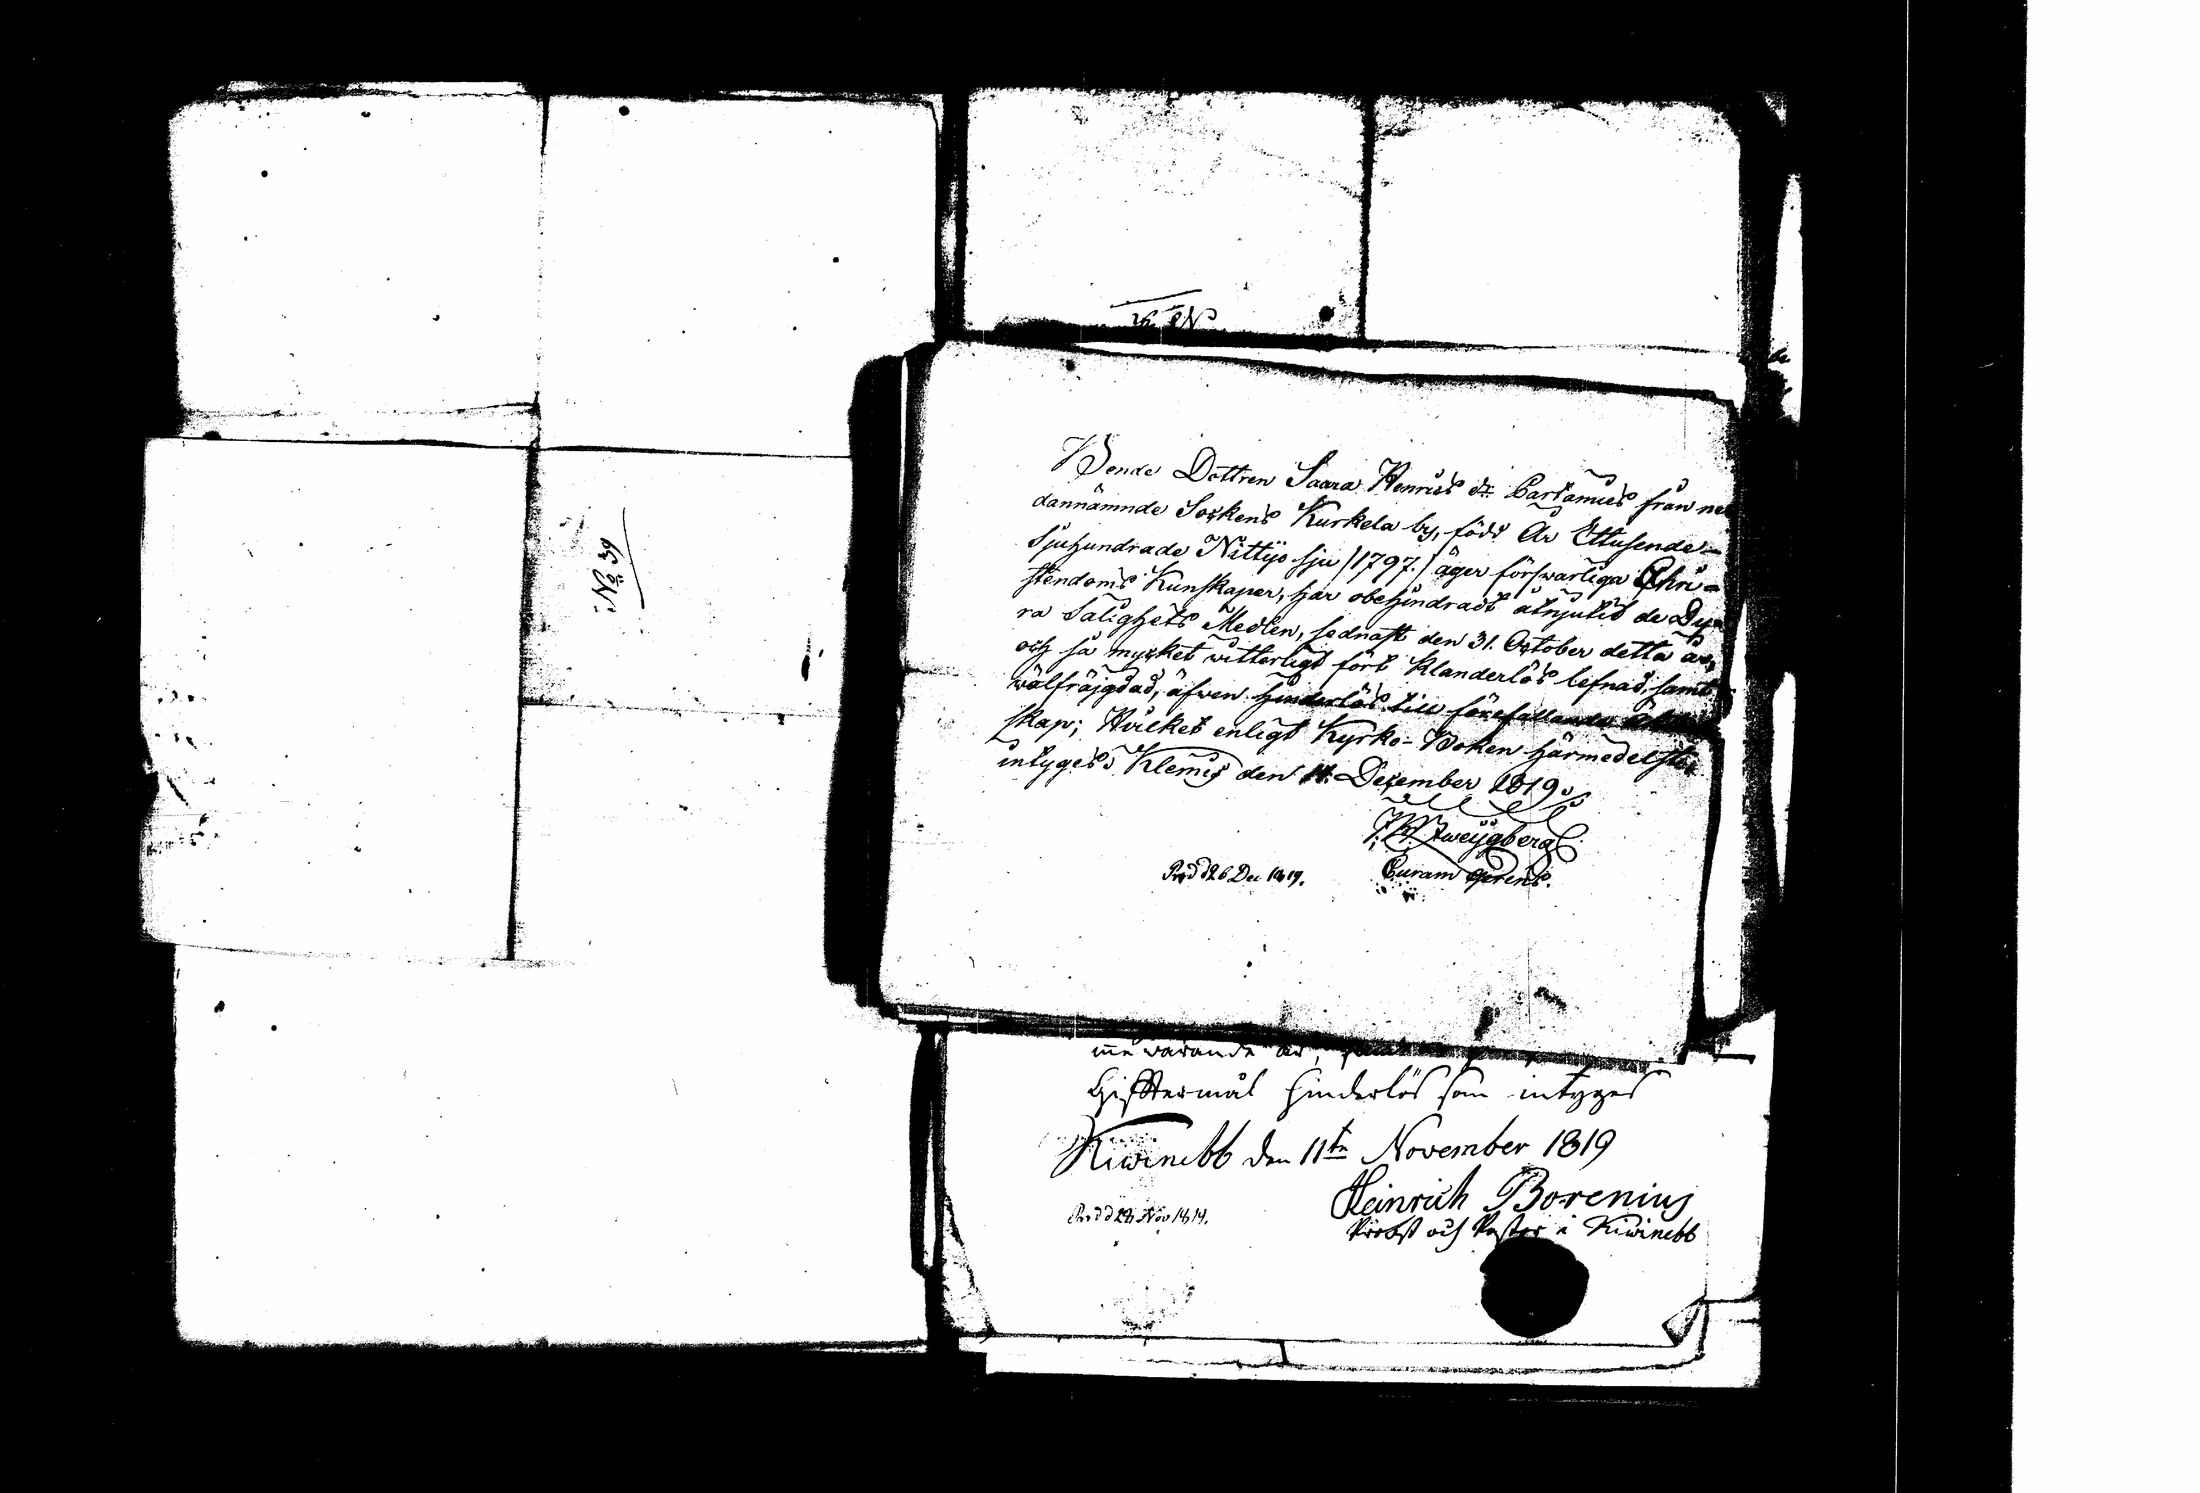 No 39
Bonde Dottren Saara Henrics dr Parkanus från ne
dannämnde Sockens Kurkela by, född År Ettusende-
Sjuhundrade Nittijo sju /1797./ äger förswarliga Chri-
stendoms Kunskaper, har obehindradt åtnjutit de Dy-
ra Salighets Medlen, sednast den 31. October detta år,
och så mycket witterligt fört klanderlös lefnad, samt
wälfräjgdad, äfwen hinderlös till förefallande
skap; Hvilket enligt Kyrko-Boken härmedelst
intygas; Klemis den 14. December 1819.
Zweÿgberg
Prod d 26 Dec 1819. Curam gerens.
warande år,
Gifftermål hinderlös som intyges
Kiwinebb den 11te November 1819
Heinrich Borenius
Prod d Nov 1819. Probst och Pastor i Kiwinebb